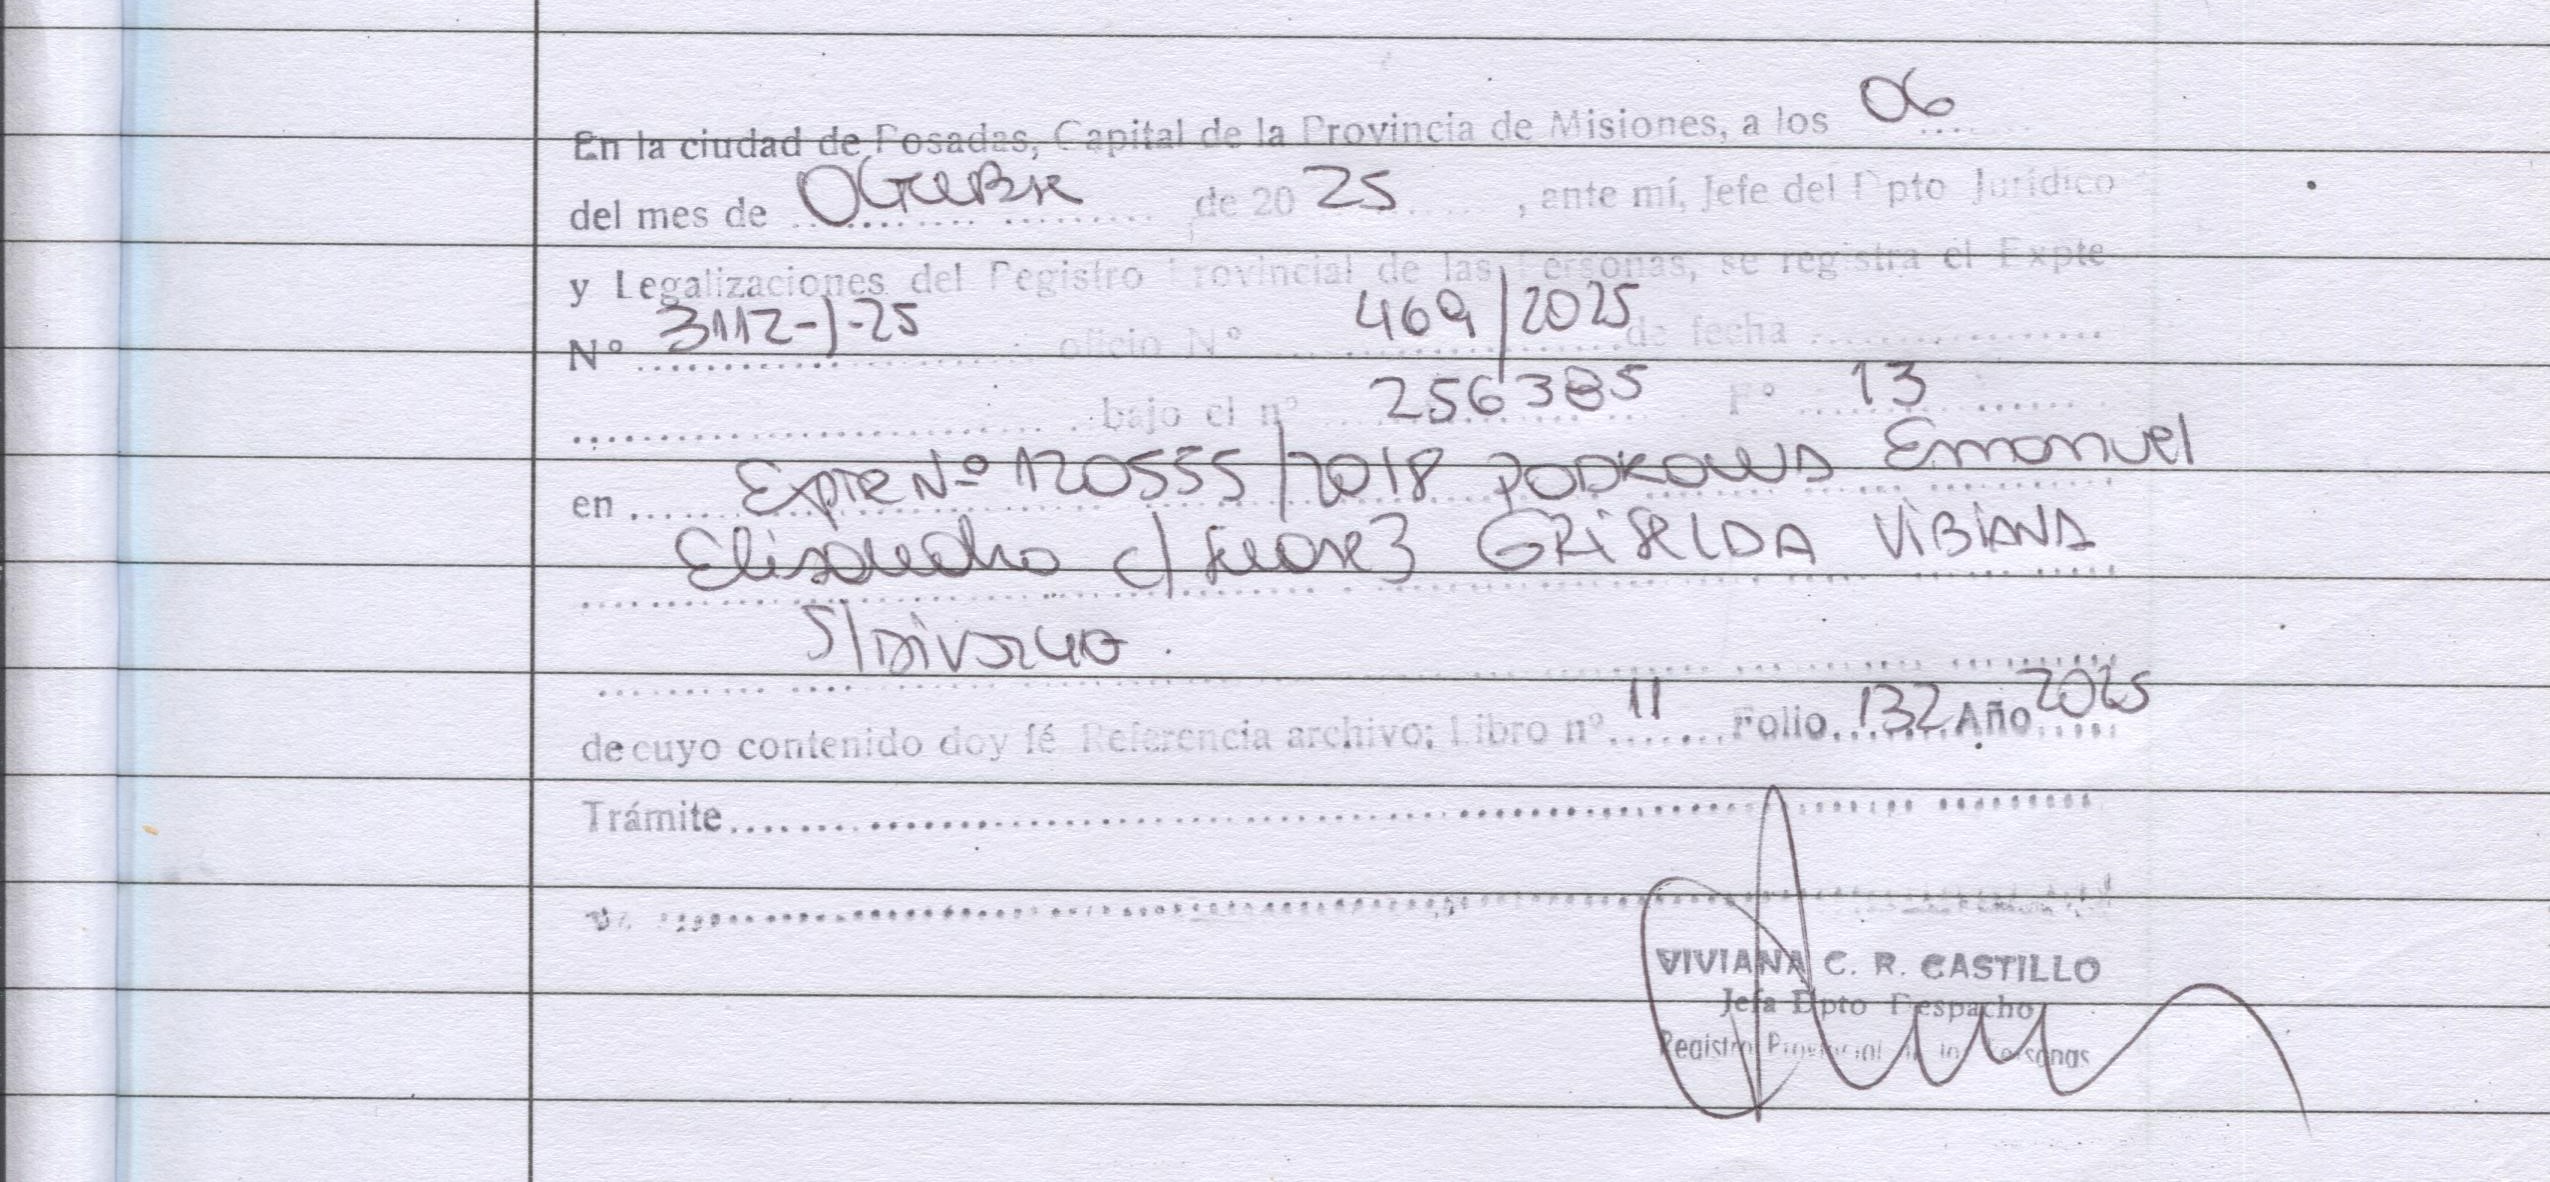 En la ciudad de Posadas, Capital de la Provincia de Misiones, a los 06
del mes de Octubre de 20 25 , ante mí, Jefe del Dpto Jurídico
y Legalizaciones del Registro Provincial de las Personas, se registra el Expte
Nº 3112-J-25 oficio Nº 469/2025 de fecha
bajo el nº 256385 Fº 13
en Expte Nº 120555/2018 PODKOWA Emanuel
Elisandro c/ Suarez GRISELDA VIBIANA
S/DIVORCIO.
de cuyo contenido doy fé Referencia archivo: Libro nº 11 Folio 132 Año 2025
Trámite
VIVIANA C. R. CASTILLO
Jefa Dpto Despacho
Registro Provincial de las Personas